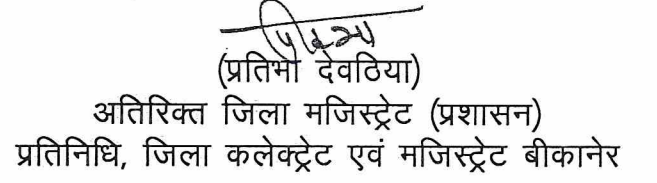 (प्रतिभा देवठिया)
अतिरिक्त जिला मजिस्ट्रेट (प्रशासन)
प्रतिनिधि, जिला कलेक्ट्रेट एवं मजिस्ट्रेट बीकानेर